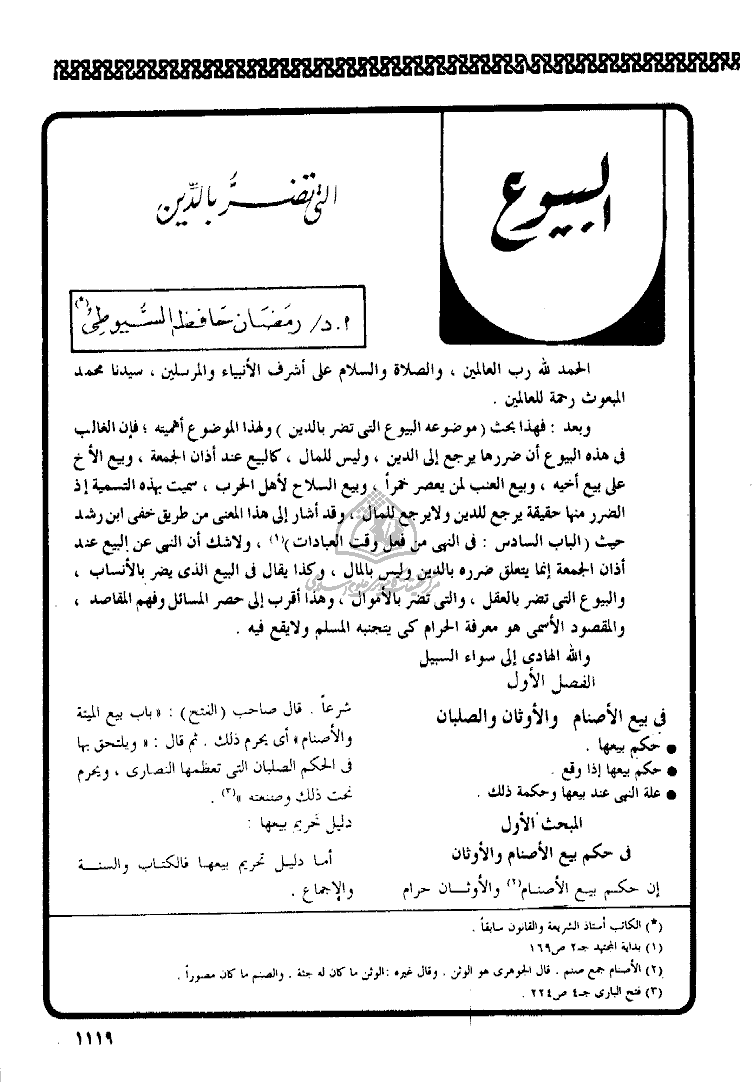 البيوع
التى تضرُّ بالدِّين
ا . د/ رمضان حافظ السُّيوطىُّ (*)
الحمد لله رب العالمين ، والصلاة والسلام على أشرف الأنبياء والمرسلين ، سيدنا محمد
المبعوث رحمة للعالمين .
وبعد : فهذا بحث ( موضوعه البيوع التى تضر بالدين ) ولهذا الموضوع أهميته ؛ فإن الغالب
فى هذه البيوع أن ضررها يرجع إلى الدين ، وليس للمال ، كالبيع عند أذان الجمعة ، وبيع الأخ
على بيع أخيه ، وبيع العنب لمن يعصر خمراً ، وبيع السلاح لأهل الحرب ، سميت بهذه التسمية إذ
الضرر منها حقيقة يرجع للدين ولايرجع للمال ، وقد أشار إلى هذا المعنى من طريق خفى ابن رشد
حيث ( الباب السادس : فى النهى من فعل وقت العبادات )(١) ، ولاشك أن النهى عن البيع عند
أذان الجمعة إنما يتعلق ضرره بالدين وليس بالمال ، وكذا يقال فى البيع الذى يضر بالأنساب ،
والبيوع التى تضر بالعقل ، والتى تضر بالأموال ، وهذا أقرب إلى حصر المسائل وفهم المقاصد ،
والمقصود الأسمى هو معرفة الحرام كى يتجنبه المسلم ولايقع فيه .
والله الهادى إلى سواء السبيل
الفصل الأول
فى بيع الأصنام والأوثان والصلبان
● حكم بيعها .
● حكم بيعها إذا وقع .
● علة النهى عند بيعها وحكمة ذلك .
المبحث الأول
فى حكم بيع الأصنام والأوثان
إن حكم بيع الأصنام(٢) والأوثان حرام
شرعاً . قال صاحب ( الفتح ) : « باب بيع الميتة
والأصنام » أى يحرم ذلك . ثم قال : « ويلتحق بها
فى الحكم الصلبان التى تعظمها النصارى ، ويحرم
نحت ذلك وصنعته »(٣) .
دليل تحريم بيعها :
أما دليل تحريم بيعها فالكتاب والسنة
والإجماع .
(*) الكاتب أستاذ الشريعة والقانون سابقاً .
(١) بداية المجتهد جـ٢ ص١٦٩
(٢) الأصنام جمع صنم . قال الجوهرى هو الوثن . وقال غيره : الوثن ما كان له جثة . والصنم ما كان مصوراً .
(٣) فتح البارى جـ٤ ص٢٢٤ .
١١١٩